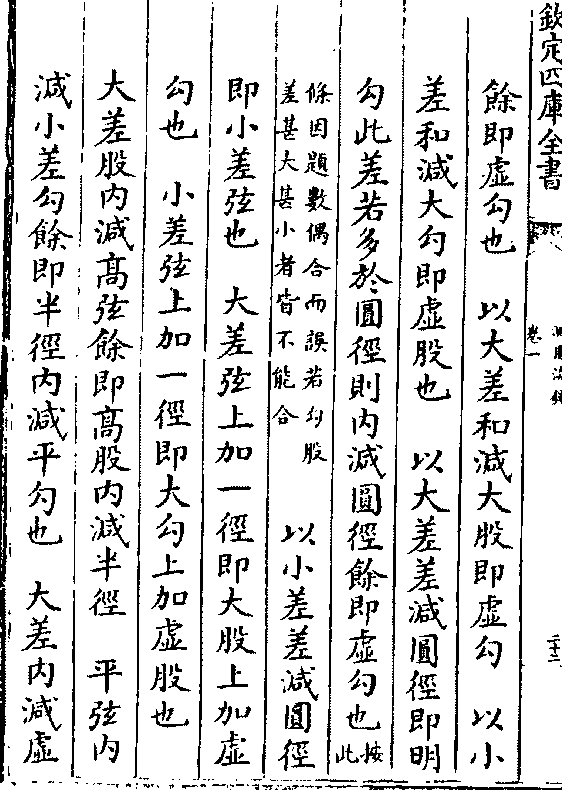 欽定四庫全書
卷一
二十二
餘即虚勾也　以大差和減大股即虚勾　以小
差和減大勾即虚股也　以大差差減圓徑即明
勾此差若多於圓徑則内減圓徑餘即虚勾也按此
條因題數偶合而誤若勾股
差甚大甚小者皆不能合
以小差差減圓徑
即小差弦也　大差弦上加一徑即大股上加虚
勾也　小差弦上加一徑即大勾上加虚股也
大差股内減髙弦餘即髙股内減半徑　平弦内
減小差勾餘即半徑内減平勾也　大差内減虚